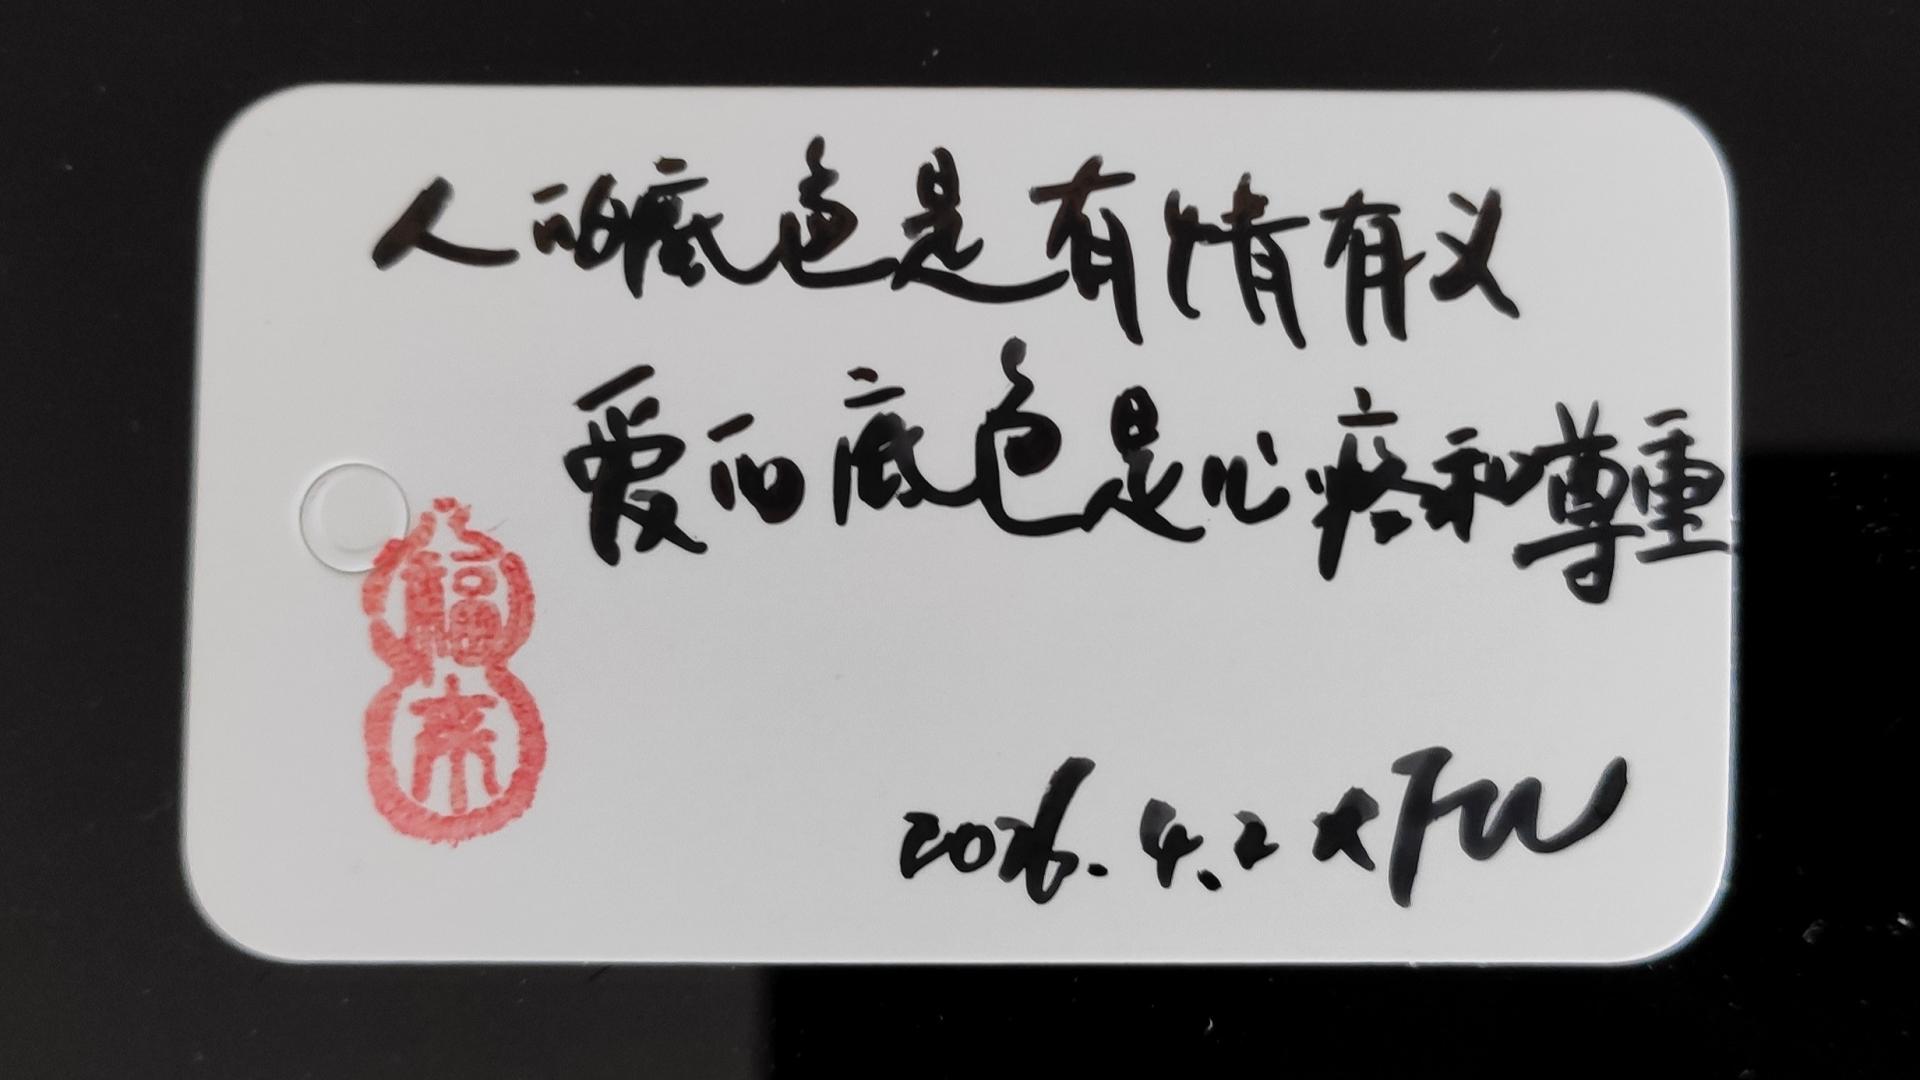 人的底色是有情有义
爱的底色是心疼和尊重
福
来
2026.4.2